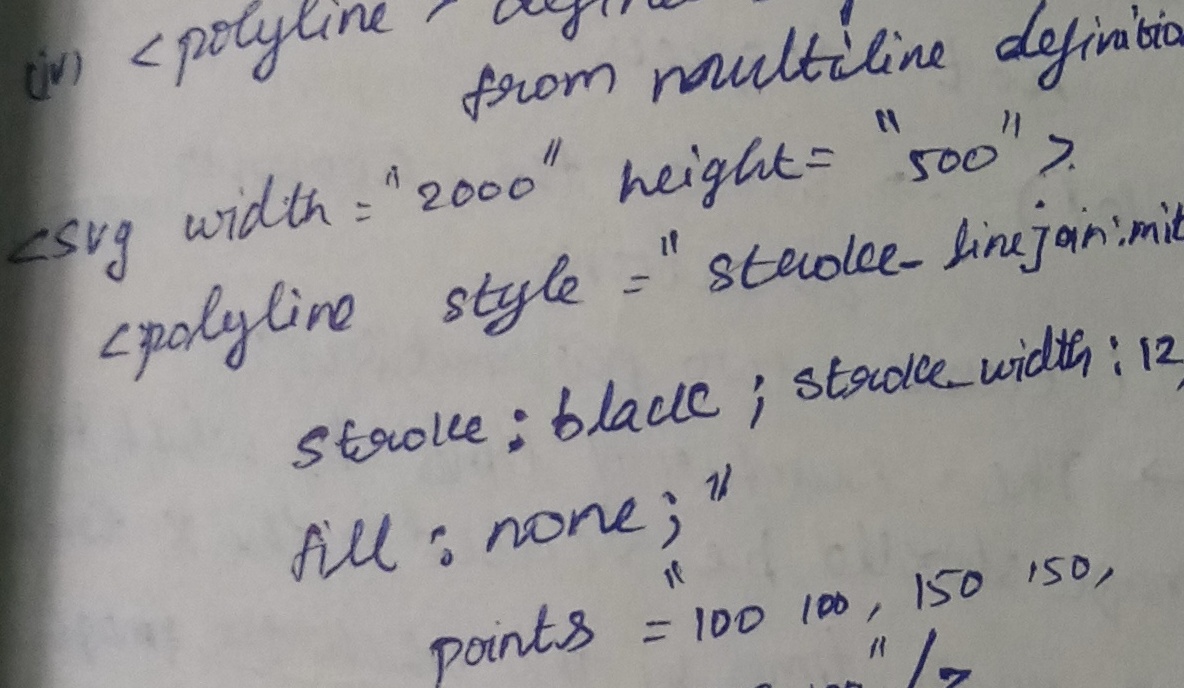 (iv) <polyline >
from multiline
<svg width = "2000" height = "500" >
<polyline style = " stroke-linejoin:mit
stroke : black ; stroke-width : 12,
fill : none ; "
points = "100 100, 150 150,
" />